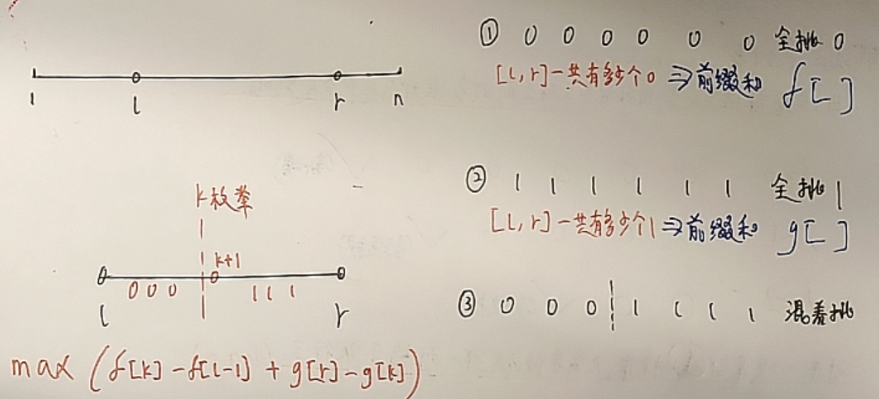 ① 0 0 0 0 0 0 全挑 0
[l,r]一共有多少个0 ⇒前缀和 f[ ]
1 l r n
② 1 1 1 1 1 1 全挑1
[l,r]一共有多少个1 ⇒前缀和 g[ ]
k枚举
k+1
0 0 0 1 1 1
l r
③ 0 0 0 1 1 1 1 混着挑
max (f[k]-f[l-1]+g[r]-g[k])